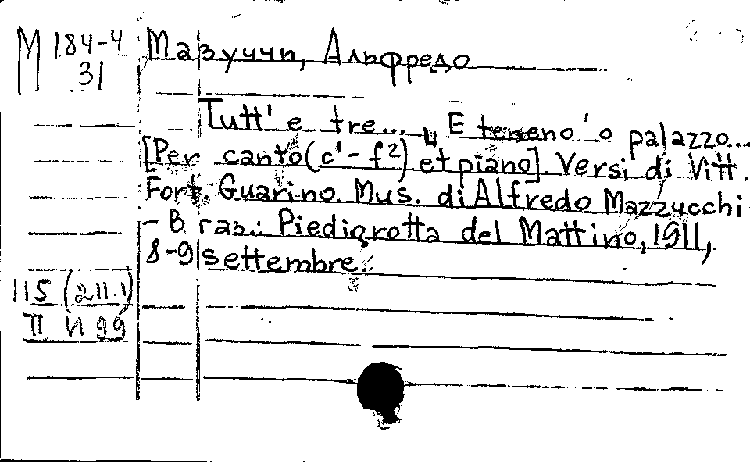 М 184-4
31
Мазуччи, Альфредо
Tutt' e tre... E teneno 'o palazzo...
[Per canto (c'-f²) et piano]. Versi di Vitt.
Fort. Guarino. Mus. di Alfredo Mazzucchi
- В газ.: Piedigrotta del Mattino, 1911,
8-9 settembre.
115 (211.1)
П И 99